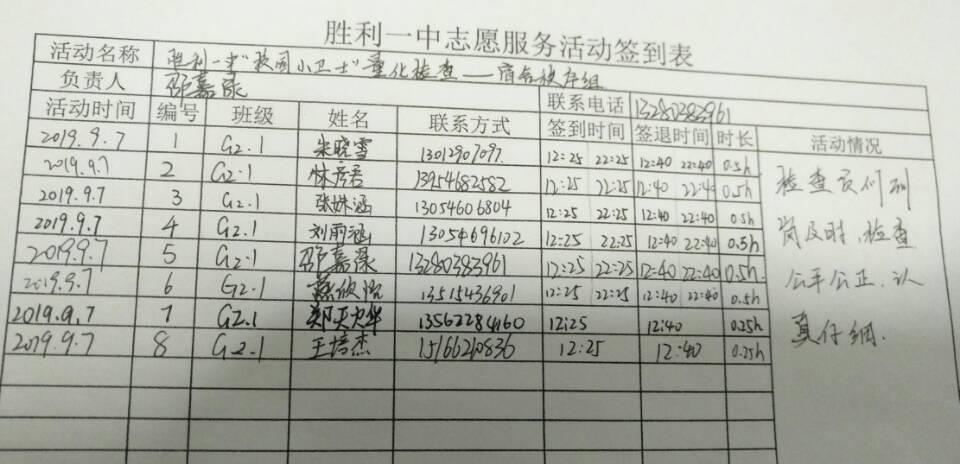 胜利一中志愿服务活动签到表
活动名称 胜利一中"校园小卫士"量化检查——宿舍秩序组
负责人 邵嘉禄 联系电话 13280383961
活动时间 编号 班级 姓名 联系方式 签到时间 签退时间 时长 活动情况
2019.9.7 1 G2.1 朱晓雪 13012907097 12:25 22:25 12:40 22:40 0.5h
2019.9.7 2 G2.1 彦君 13954682582 12:25 22:25 12:40 22:4 0.5h
2019.9.7 3 G2.1 张姝涵 13054606804 12:25 22:25 12:40 22:40 0.5h
2019.9.7 4 G2.1 刘雨涵 13054696102 12:25 22:25 12:40 22:40 0.5h
2019.9.7 5 G2.1 邵嘉禄 13280383961 12:25 22:25 12:40 22:40 0.5h
2019.9.7 6 G2.1 欣怡 13515436901 12:25 22:25 12:40 22:40 0.5h
2019.9.7 7 G2.1 郑 华 13562284160 12:25 12:40 0.25h
2019.9.7 8 G2.1 王培杰 15166210836 12:25 12:40 0.25h
检查员们到
岗及时,检查
公平公正、认
真仔细.